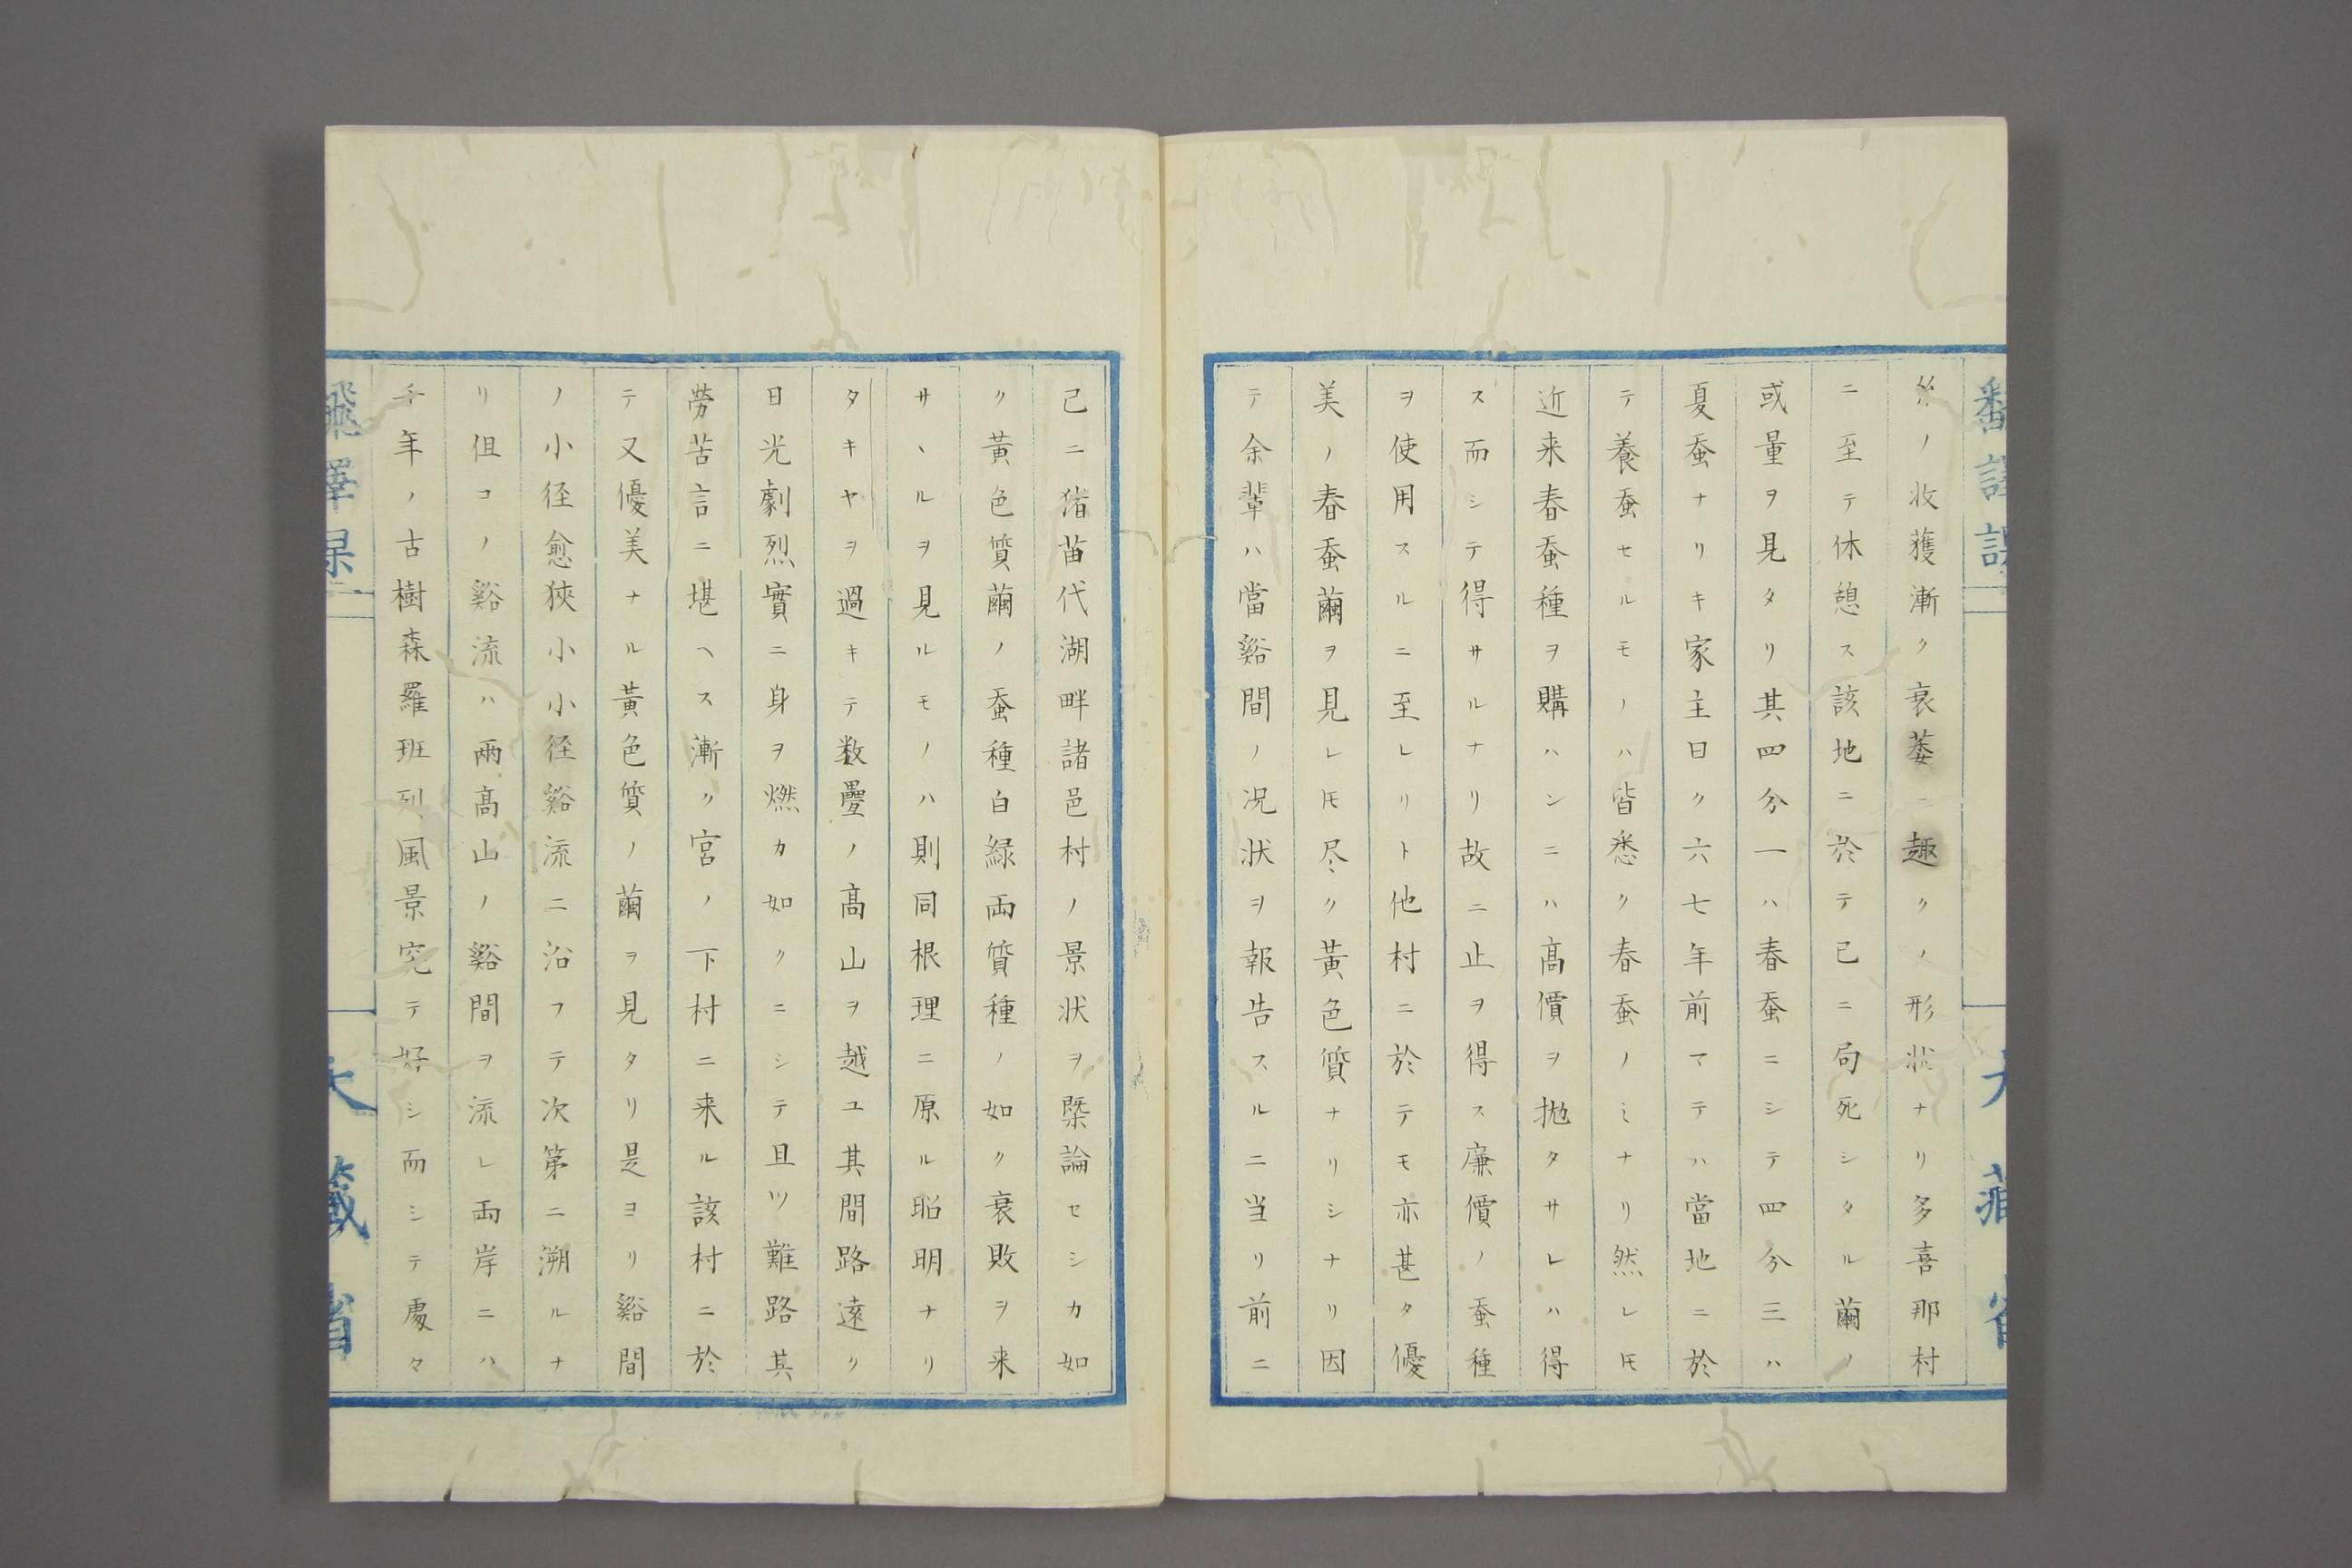 ノ收獲漸ク衰萎ニ趣クノ形状ナリ多喜那村
ニ至テ休憩ス該地ニ於テ已ニ局死シタル繭ノ
或量ヲ見タリ其四分一ハ春蚕ニシテ四分三ハ
夏蚕ナリキ家主曰ク六七年前マテハ當地ニ於
テ養蚕セルモノハ皆悉ク春蚕ノミナリ然レ𪜈
近来春蚕種ヲ購ハシニハ高價ヲ抛タサレハ得
ス而シテ得サルナリ故ニ止ヲ得ス廉價ノ蚕種
ヲ使用スルニ至レリト他村ニ於テモ亦甚タ優
美ノ春蚕繭ヲ見レ𪜈尽ク黄色質ナリシナリ因
テ余輩ハ當谿間ノ况状ヲ報告スルニ当リ前ニ
己ニ猪苗代湖畔諸邑村ノ景状ヲ槩論セシカ如
ク黄色質繭ノ蚕種白緑両質種ノ如ク衰敗ヲ来
サヽルヲ見ルモノハ則同根理ニ原ル昭明ナリ
タキヤヲ過キテ数疊ノ髙山ヲ越ユ其間路遠ク
日光劇烈實ニ身ヲ燃カ如クニシテ且ツ難路其
勞苦言ニ堪ヘス漸ク宮ノ下村ニ来ル該村ニ於
テ又優美ナル黄色質ノ繭ヲ見タリ是ヨリ谿間
ノ小径愈狹小小径谿流ニ沿フテ次第ニ溯ルナ
リ伹コノ谿流ハ兩髙山ノ谿間ヲ流レ両岸ニハ
千年ノ古樹森羅班列風景究テ好シ而シテ處々